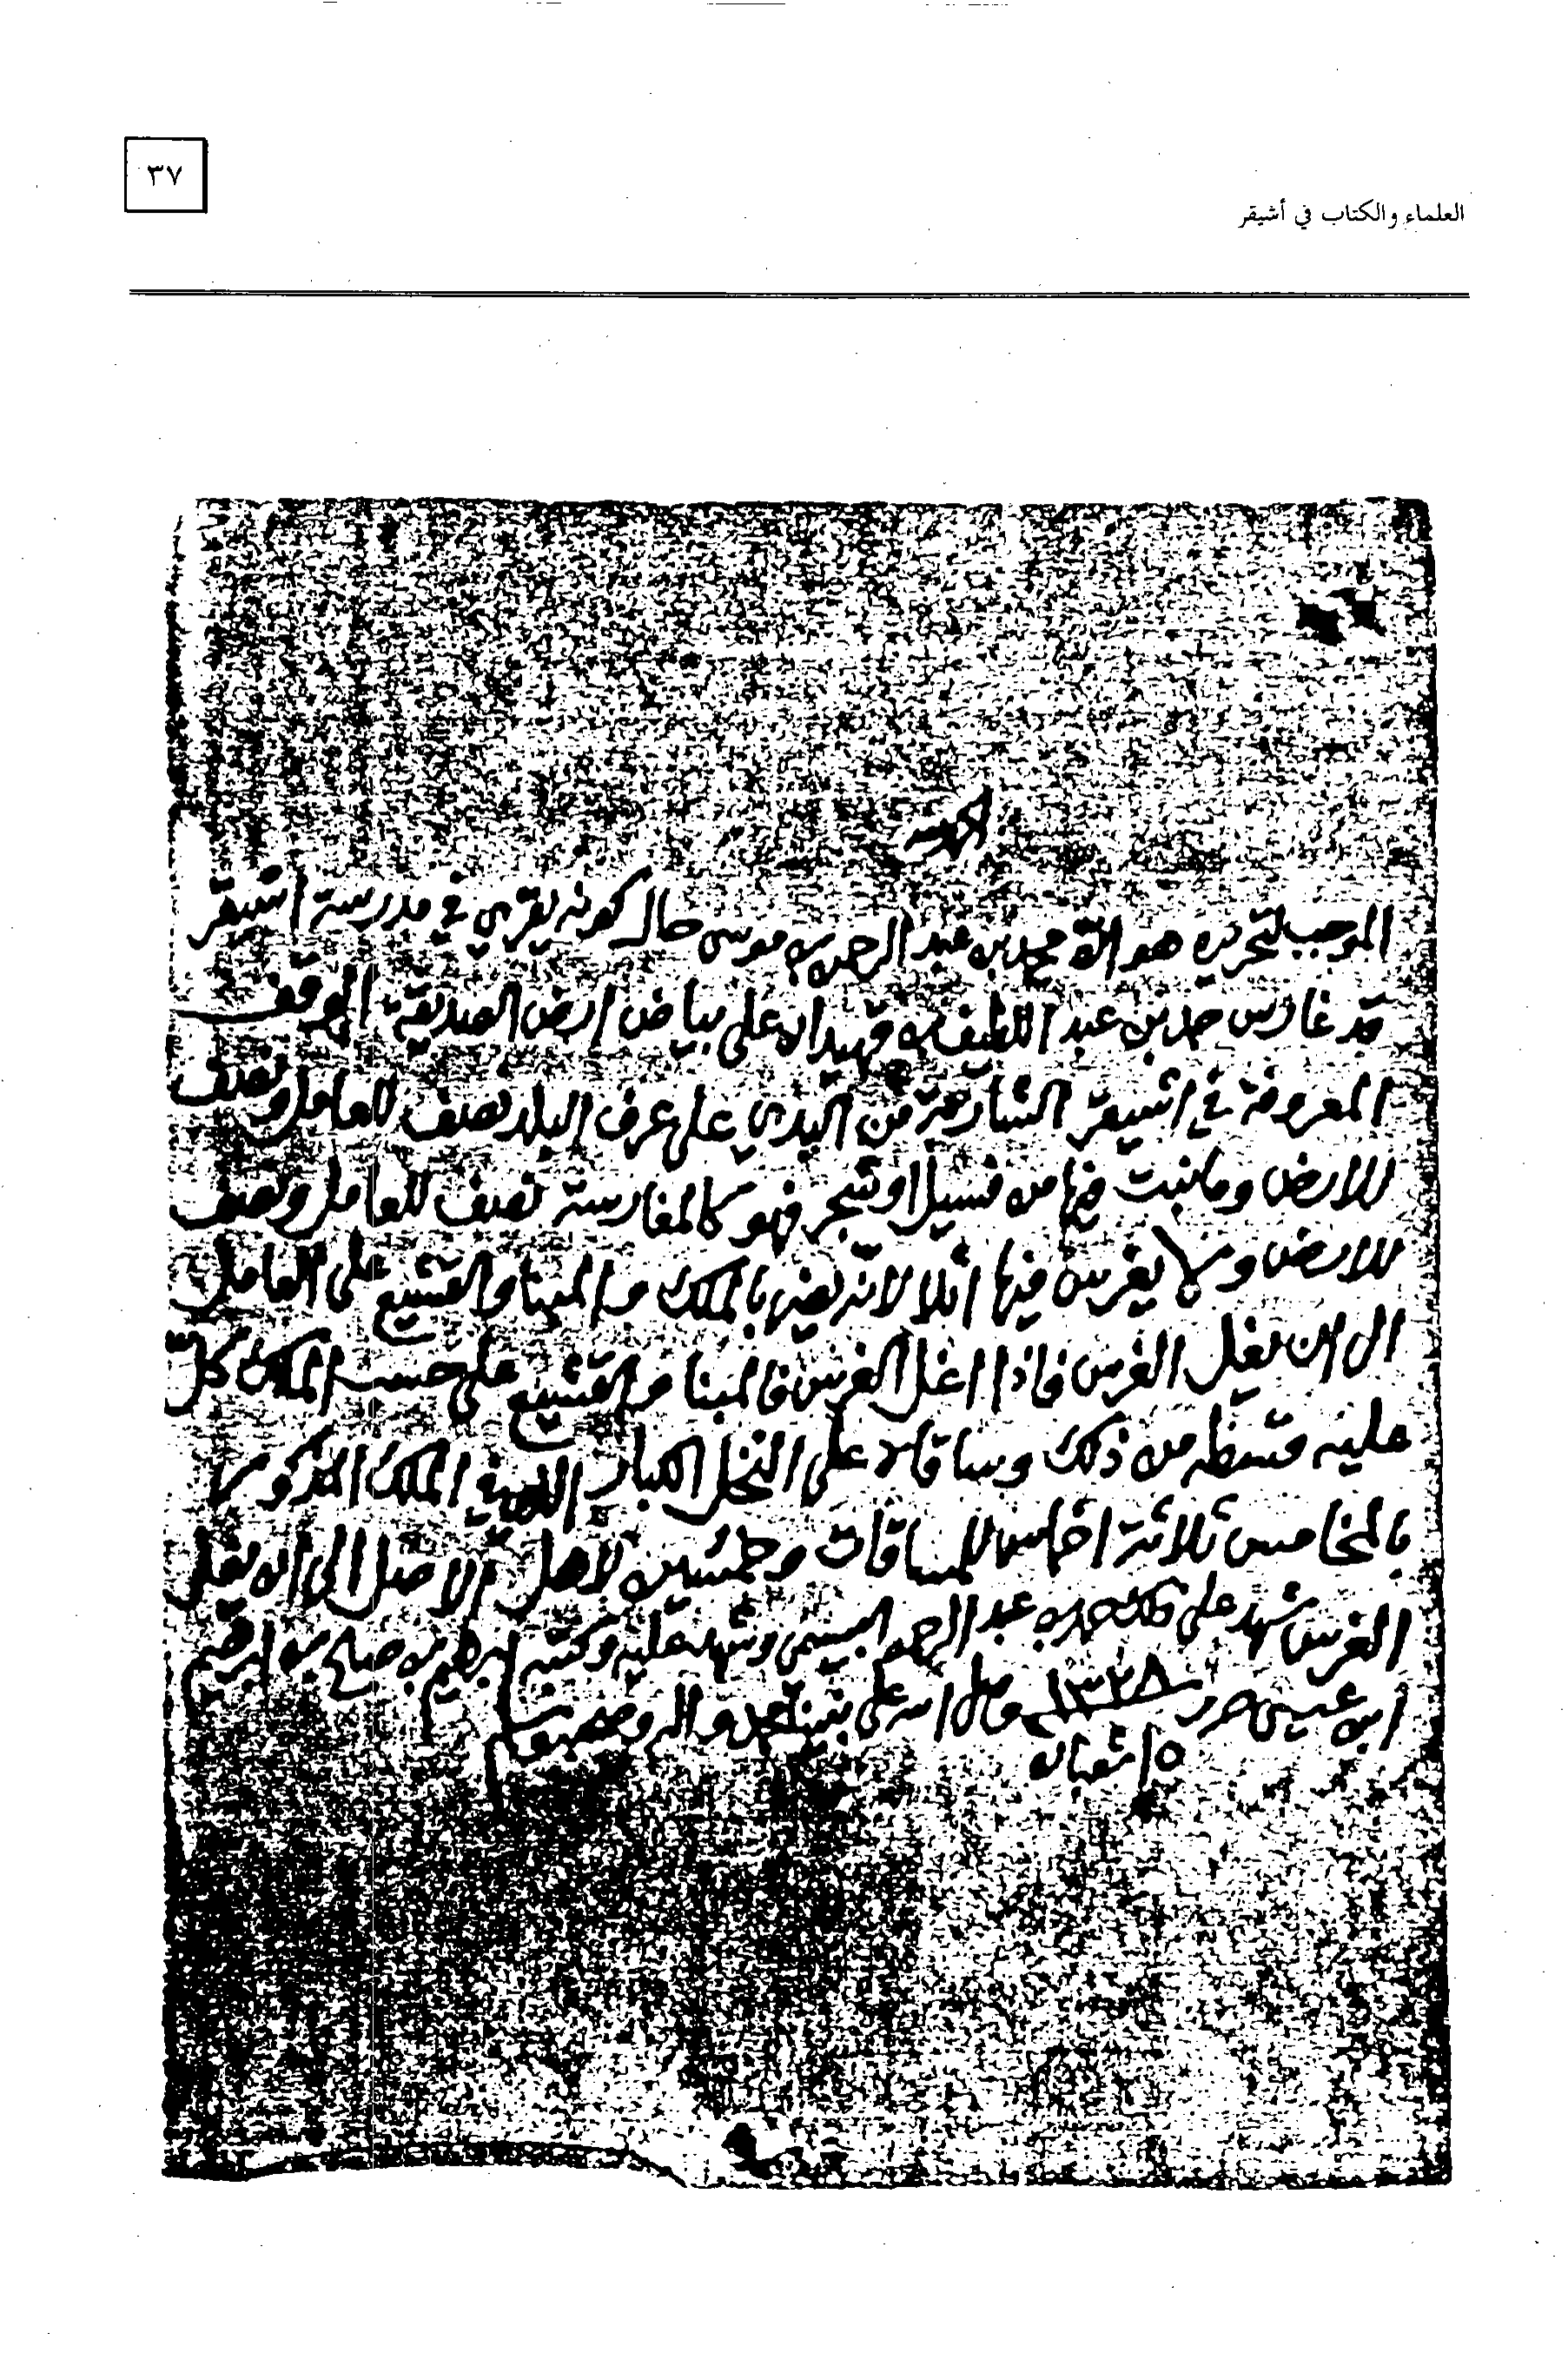 ٣٧
العلماء والكتاب في أشيقر
الحمد لله
الموجب لتحريره هو انه محمد بن عبد الرحمن بن موسى حال كونه يقري في مدرسة اشيقر
قد غارس حمد بن عبد اللطيف بن فهيد على بياض ارض الصديقية الموقف
المعروفة في اشيقر الشارعة من البدي على عرف البلد نصف للعامل ونصف
للارض وما نبت فيها من فسيل او شجر فهو كالمغارسة نصف للعامل ونصف
للارض ولا يغرس فيها اثلا لانه يضر بالملك والمبنا والتشييع على العامل
الى ان يغل الغرس فاذا اغل الغرس فالمبنا والتشييع على حسب الملك كل
عليه قسطه من ذلك وساقاه على النخل الكبار في الملك المذكور
بالمخامس ثلاثة اخماس للمساقات وخمسين لاهل الاصل الى ان يغل
الغرس شهد على ذلك محمد بن عبد الرحمن البسيمي وشهد عليه وكتبه ابرهيم بن صالح بن ابرهيم
ابن عيسى حرر ١٣٢٨ وصلى الله على نبينا محمد واله وصحبه وسلم
١٥ شعبان